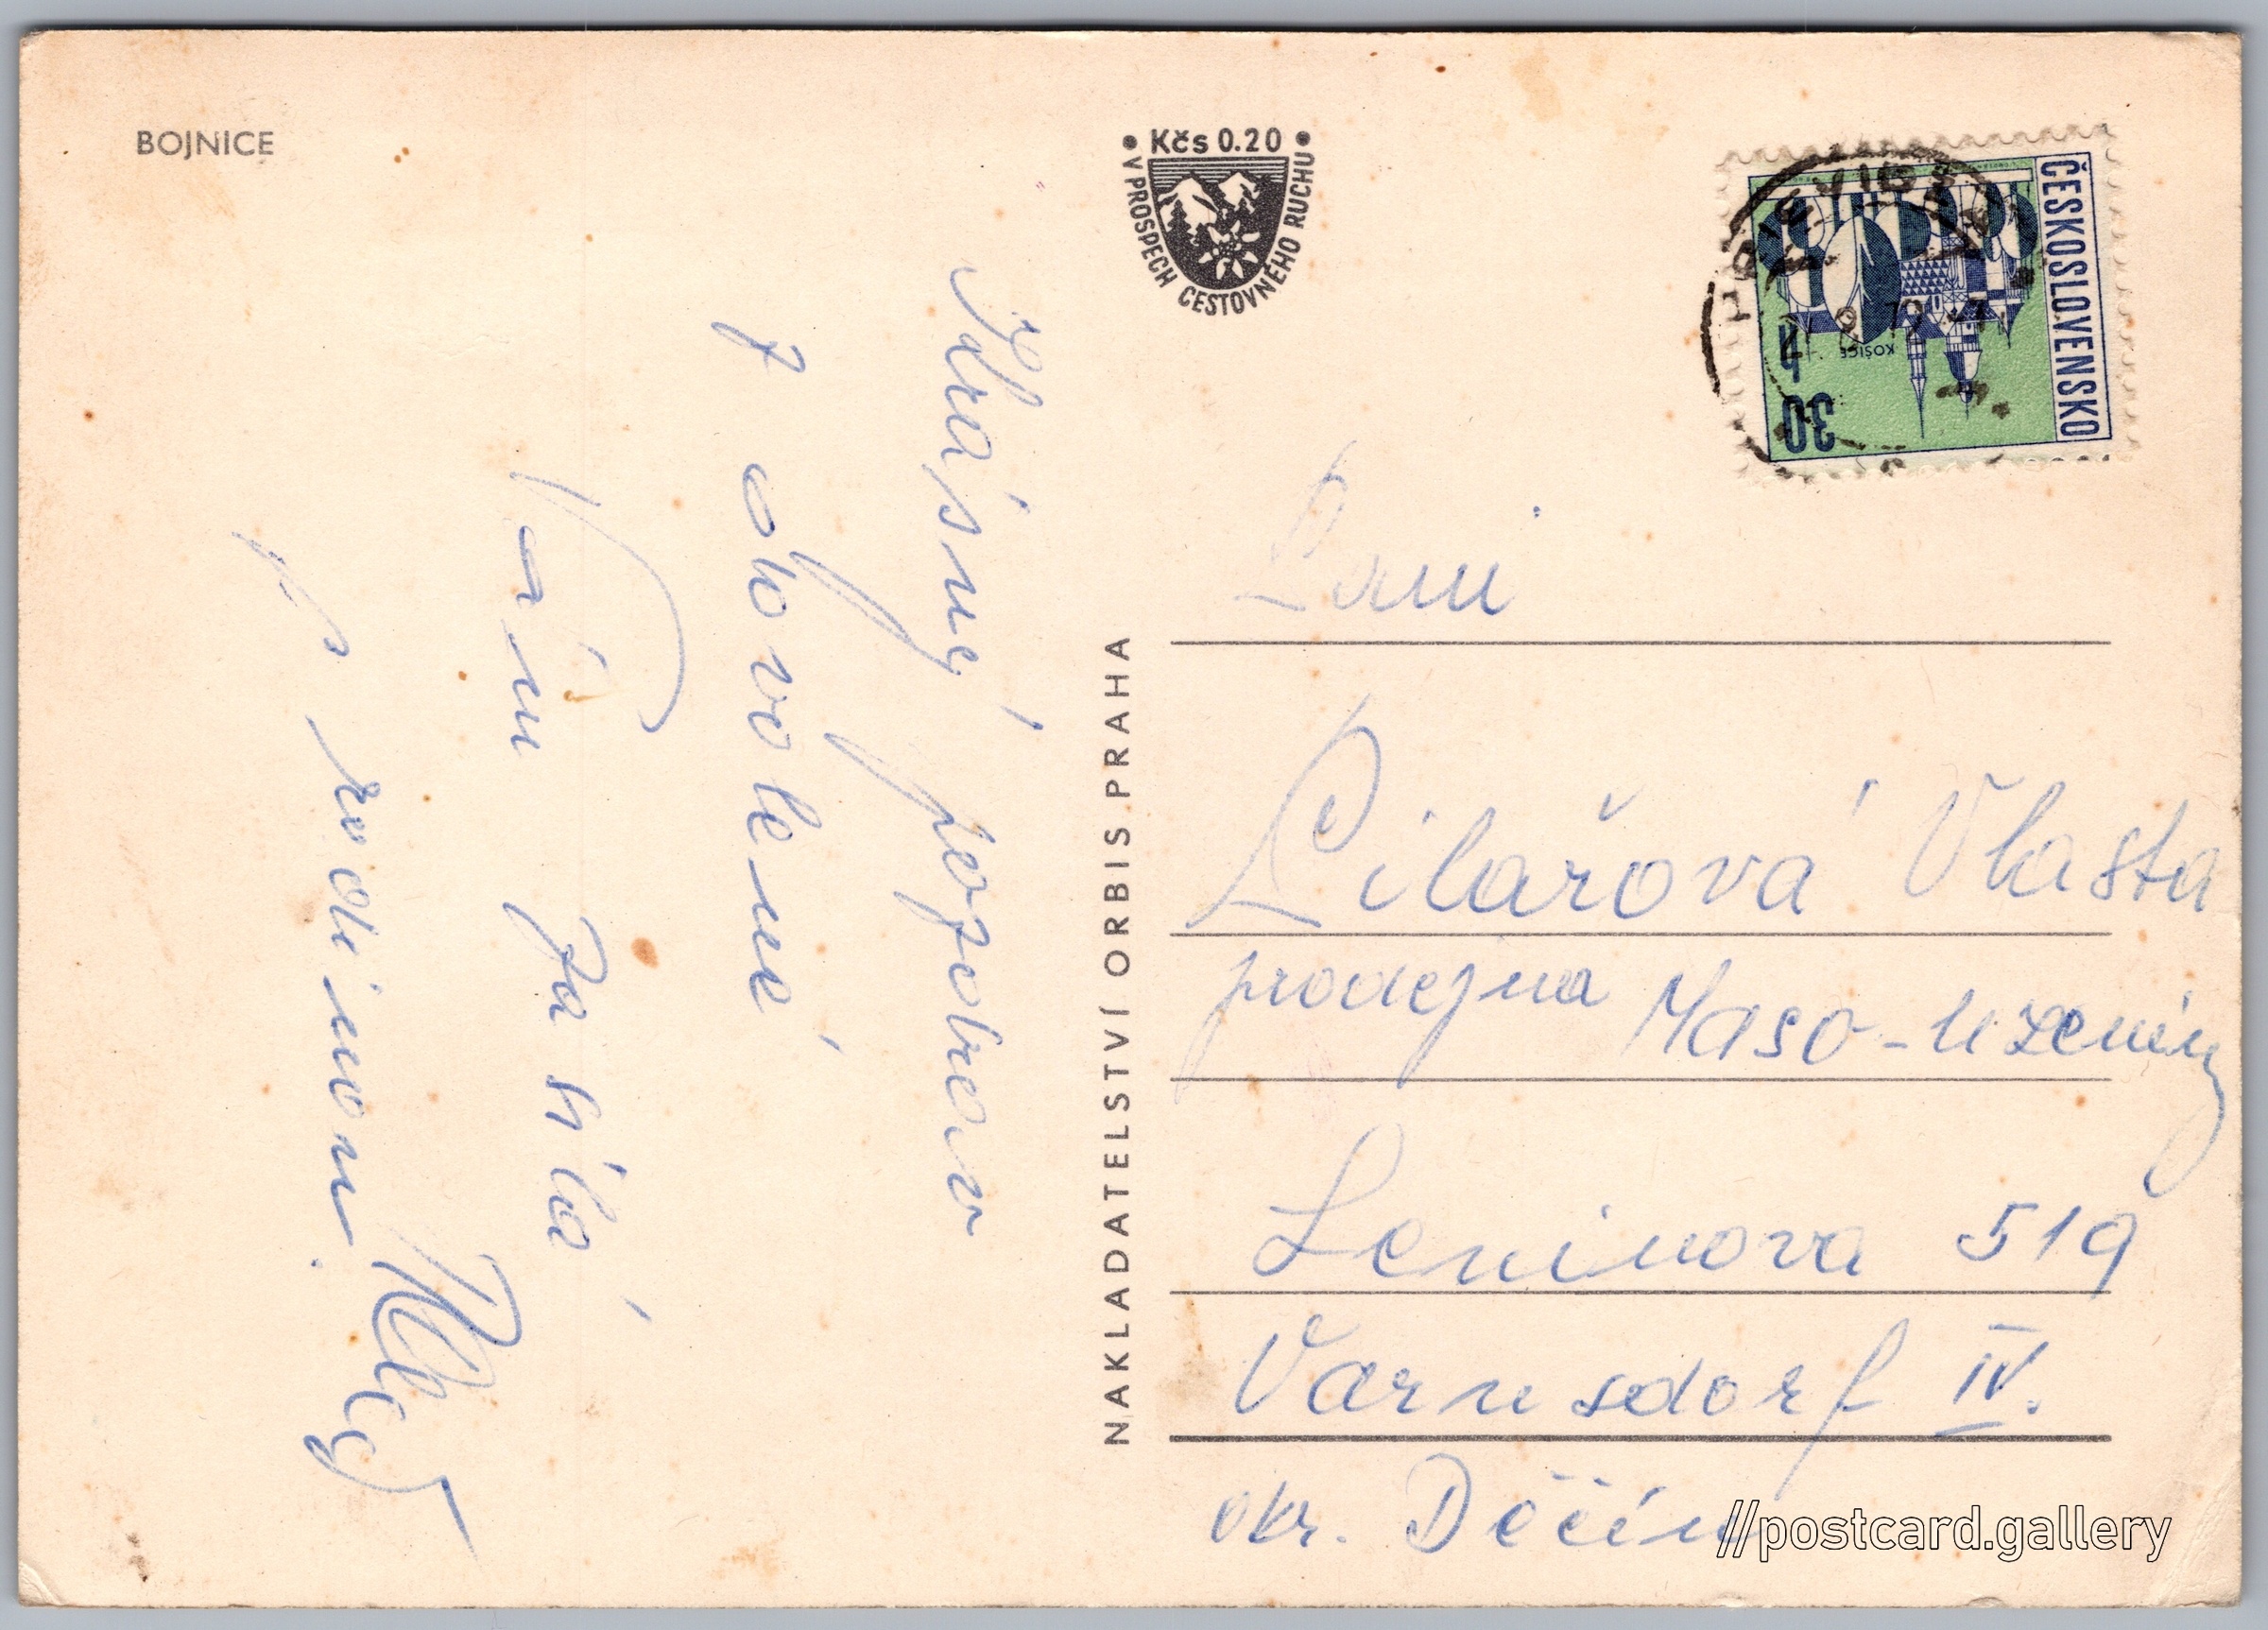 BOJNICE
• Kčs 0.20 •
V PROSPECH CESTOVNÉHO RUCHU
ČESKOSLOVENSKO
KOŠICE
30
PRIEVIDZA
Krásný pozdrav
z dovolené
Vám zasílá
s rodinou
NAKLADATELSTVÍ ORBIS PRAHA
Paní
Pilařová Vlasta
prodejna Maso-uzeniny
Leninova 519
Varnsdorf IV.
okr. Děčín
//postcard.gallery